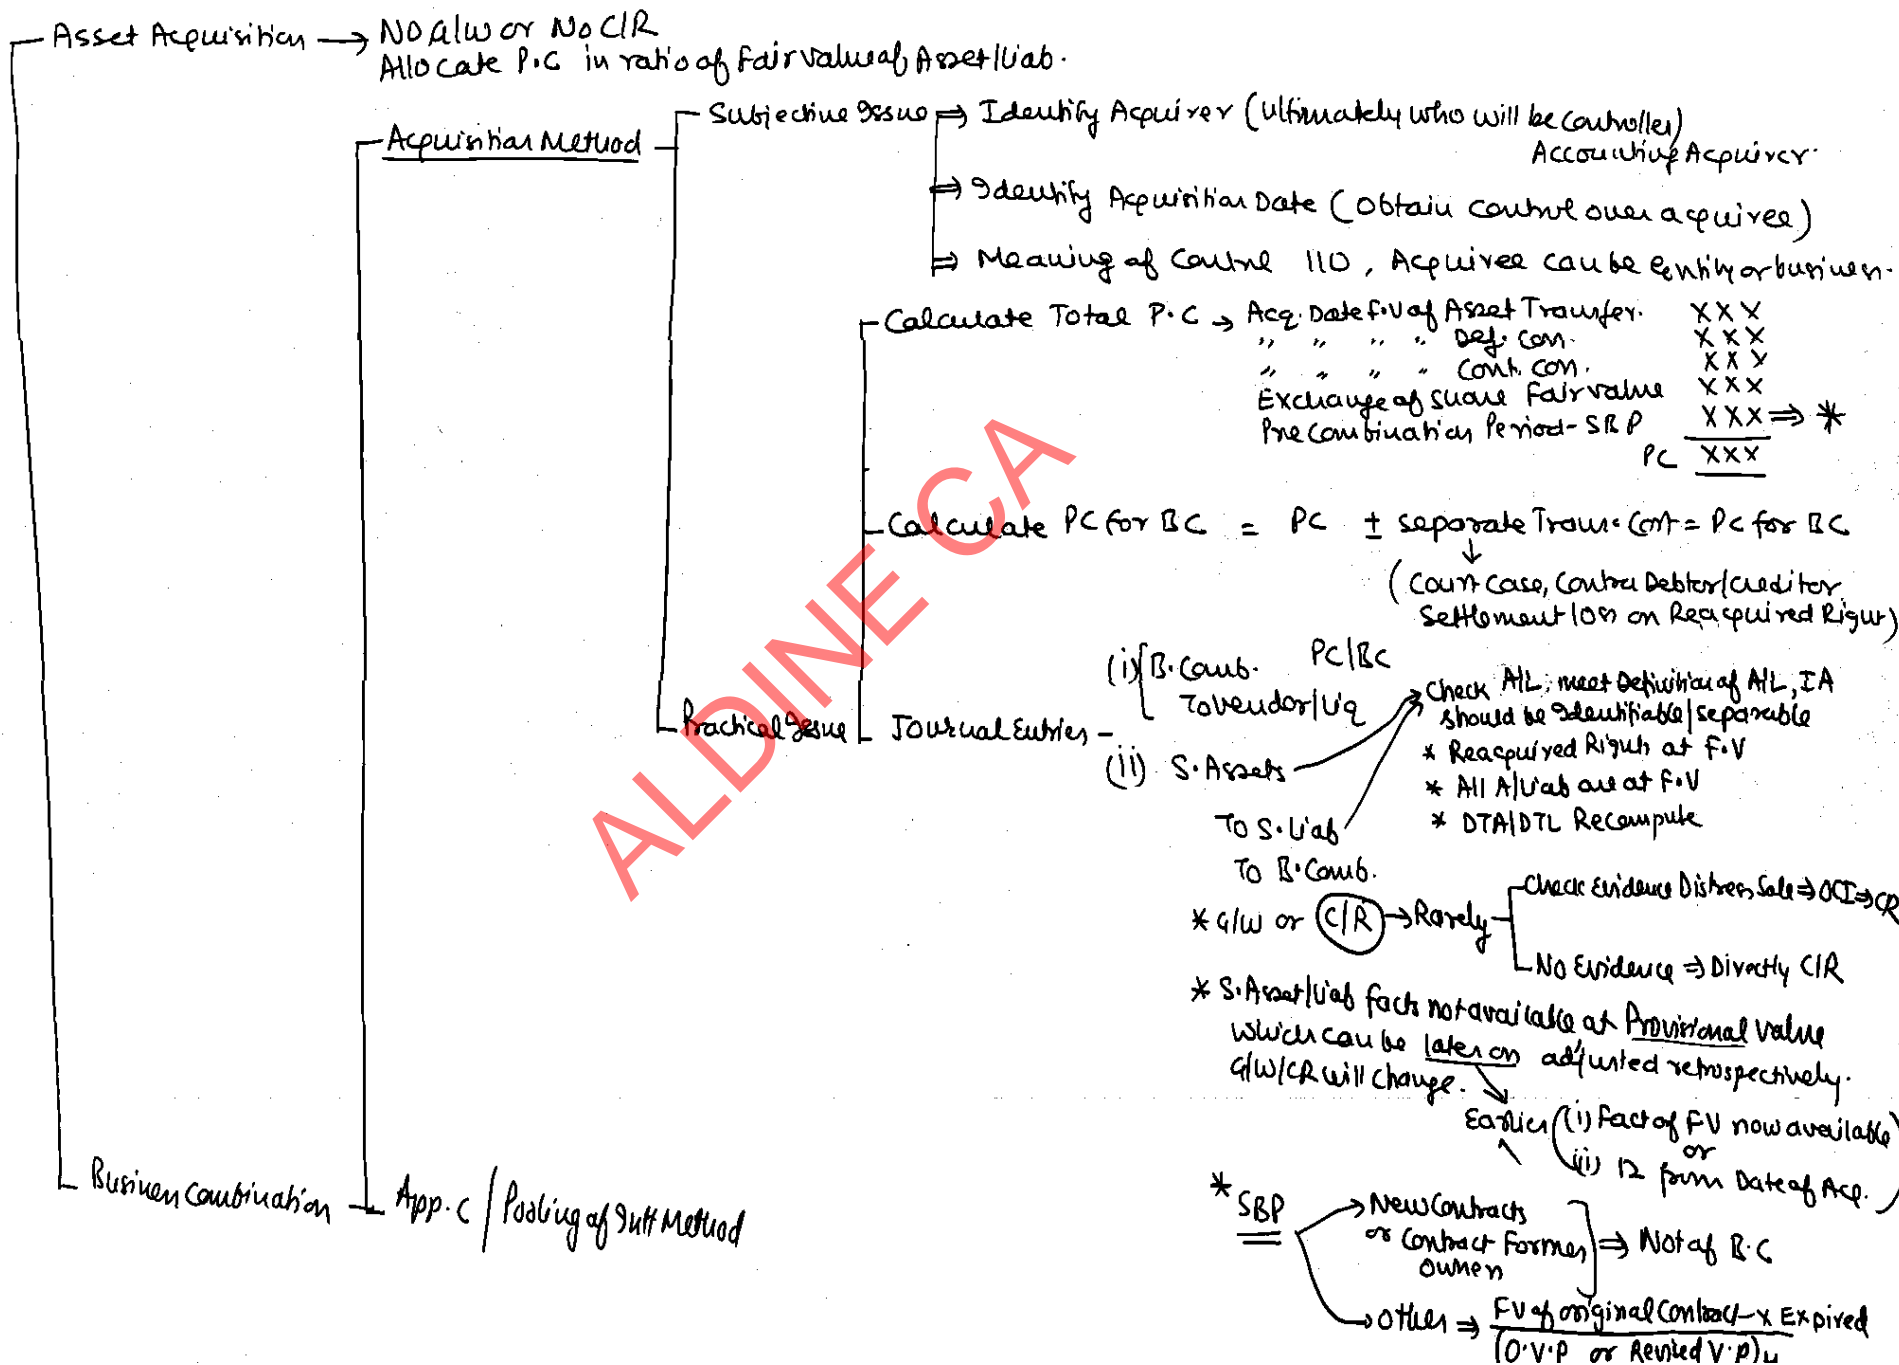 Asset Acquisition → No G/W or No C/R
Allocate P.C in ratio of Fair value of Asset/Liab.
Acquisition Method
Subjective Issue ⇒ Identify Acquirer (Ultimately who will be controller)
Accounting Acquirer.
⇒ Identify Acquisition Date (Obtain control over acquiree)
⇒ Meaning of Control 110, Acquiree can be entity or business.
Calculate Total P.C → Acq. Date F.V of Asset Transfer. XXX
" " " " Def. Con. XXX
" " " " Cont. Con. XXX
Exchange of share Fair value XXX
Pre Combination Period - SBP XXX ⇒ *
PC XXX
Calculate PC for BC = PC ± separate Trans. Cost = PC for BC
(Court Case, Contra Debtor/Creditor
Settlement loss on Reacquired Right)
Practical Issue
Journal Entries -
(i) B. Comb. PC/BC
To Vendor/Liq
(ii) S. Assets
To S. Liab
To B. Comb.
Check A/L; meet Definition of A/L, IA
should be Identifiable/separable
* Reacquired Rights at F.V
* All A/Liab are at F.V
* DTA/DTL Recompute
* G/W or C/R → Rarely
Check Evidence Distress Sale ⇒ OCI ⇒ CR
No Evidence ⇒ Directly C/R
* S. Asset/Liab facts not available at Provisional value
which can be later on adjusted retrospectively.
G/W/CR will change.
Earlier (i) Fact of FV now available
or
(ii) 12 from Date of Acq.)
Business Combination
App. C / Pooling of Intt Method
* SBP → New Contracts
or Contract Former
Owners ⇒ Not of B.C
→ Other ⇒ FV of original Contract x Expired
(O.V.P or Revised V.P)
ALDINE CA